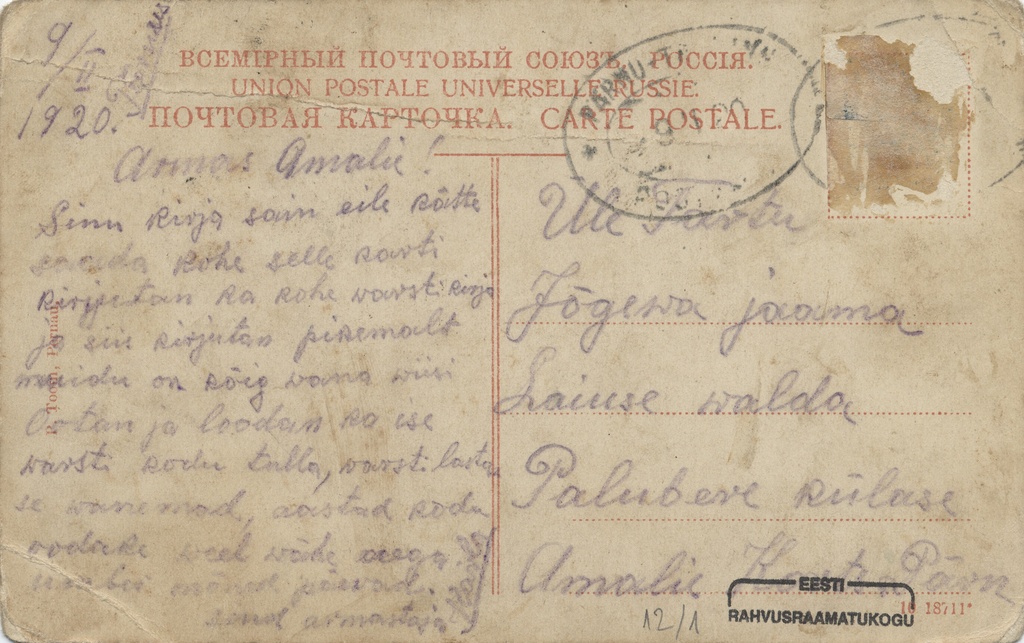 9/II
1920.
Pärnus
ВСЕМІРНЫЙ ПОЧТОВЫЙ СОЮЗЪ. РОССІЯ.
UNION POSTALE UNIVERSELLE RUSSIE.
ПОЧТОВАЯ КАРТОЧКА. CARTE POSTALE.
PÄRNU
Armas Amalie!
Sinu kirja sain eile kätte
saada kohe selle karti
kirjutan ka kohe warsti kirja
ja siis kirjutan pikemalt
muidu on kõig wana wiisi
Ootan ja loodan ka ise
warsti kodu tulla, warsti lasta
se wanemad, aastad kodu
oodake weel wähe aega
mõned päewad.
Sind armastaja
Üle Tartu
Jõgewa jaama
Laiuse walda
Palupere külase
Amalie Pärn
EESTI
RAHVUSRAAMATUKOGU
18711*
12/1